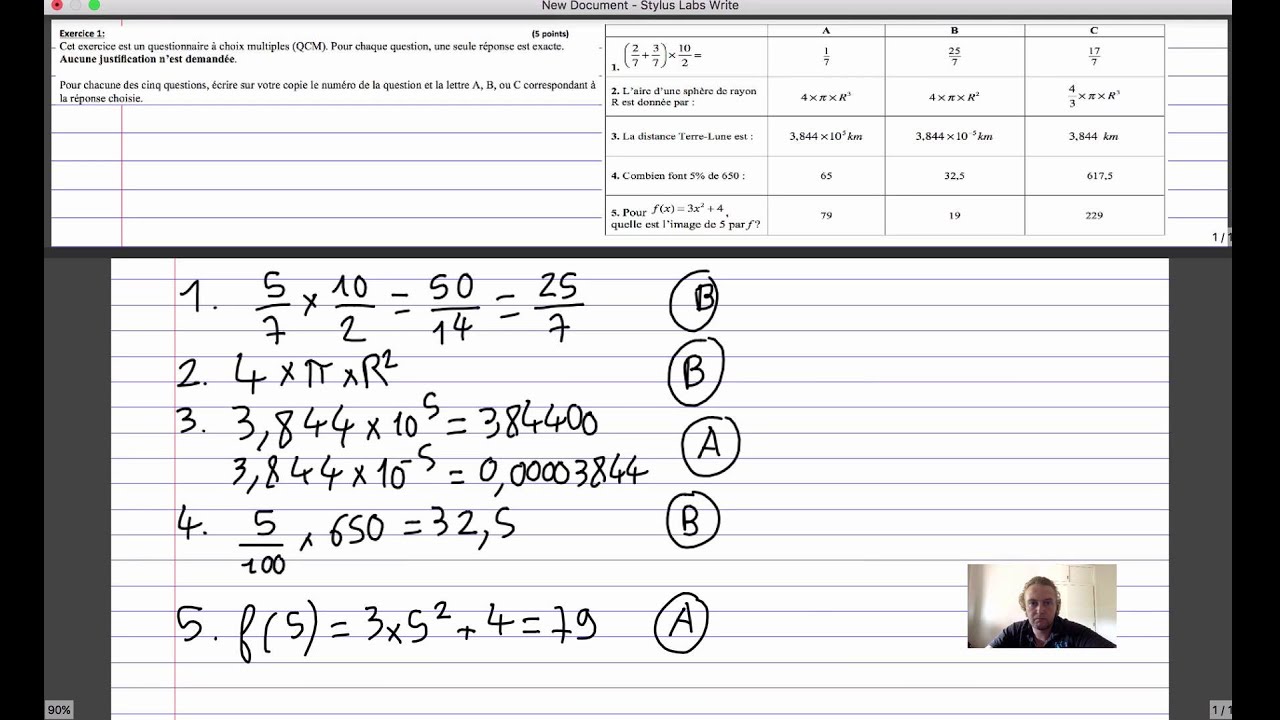 New Document - Stylus Labs Write
Exercice 1: (5 points)
Cet exercice est un questionnaire à choix multiples (QCM). Pour chaque question, une seule réponse est exacte.
Aucune justification n'est demandée.
Pour chacune des cinq questions, écrire sur votre copie le numéro de la question et la lettre A, B, ou C correspondant à
la réponse choisie.
A B C
1. (2/7 + 3/7) × 10/2 = 1/7 25/7 17/7
2. L'aire d'une sphère de rayon
R est donnée par : 4×π×R³ 4×π×R² 4/3×π×R³
3. La distance Terre-Lune est : 3,844×10⁵ km 3,844×10⁻⁵ km 3,844 km
4. Combien font 5% de 650 : 65 32,5 617,5
5. Pour f(x)=3x²+4,
quelle est l'image de 5 par f ? 79 19 229
1 / 1
1. 5/7 × 10/2 = 50/14 = 25/7 B
2. 4 × π × R² B
3. 3,844 × 10⁵ = 384400
3,844 × 10⁻⁵ = 0,00003844 A
4. 5/100 × 650 = 32,5 B
5. f(5) = 3×5² + 4 = 79 A
90% 1 / 1